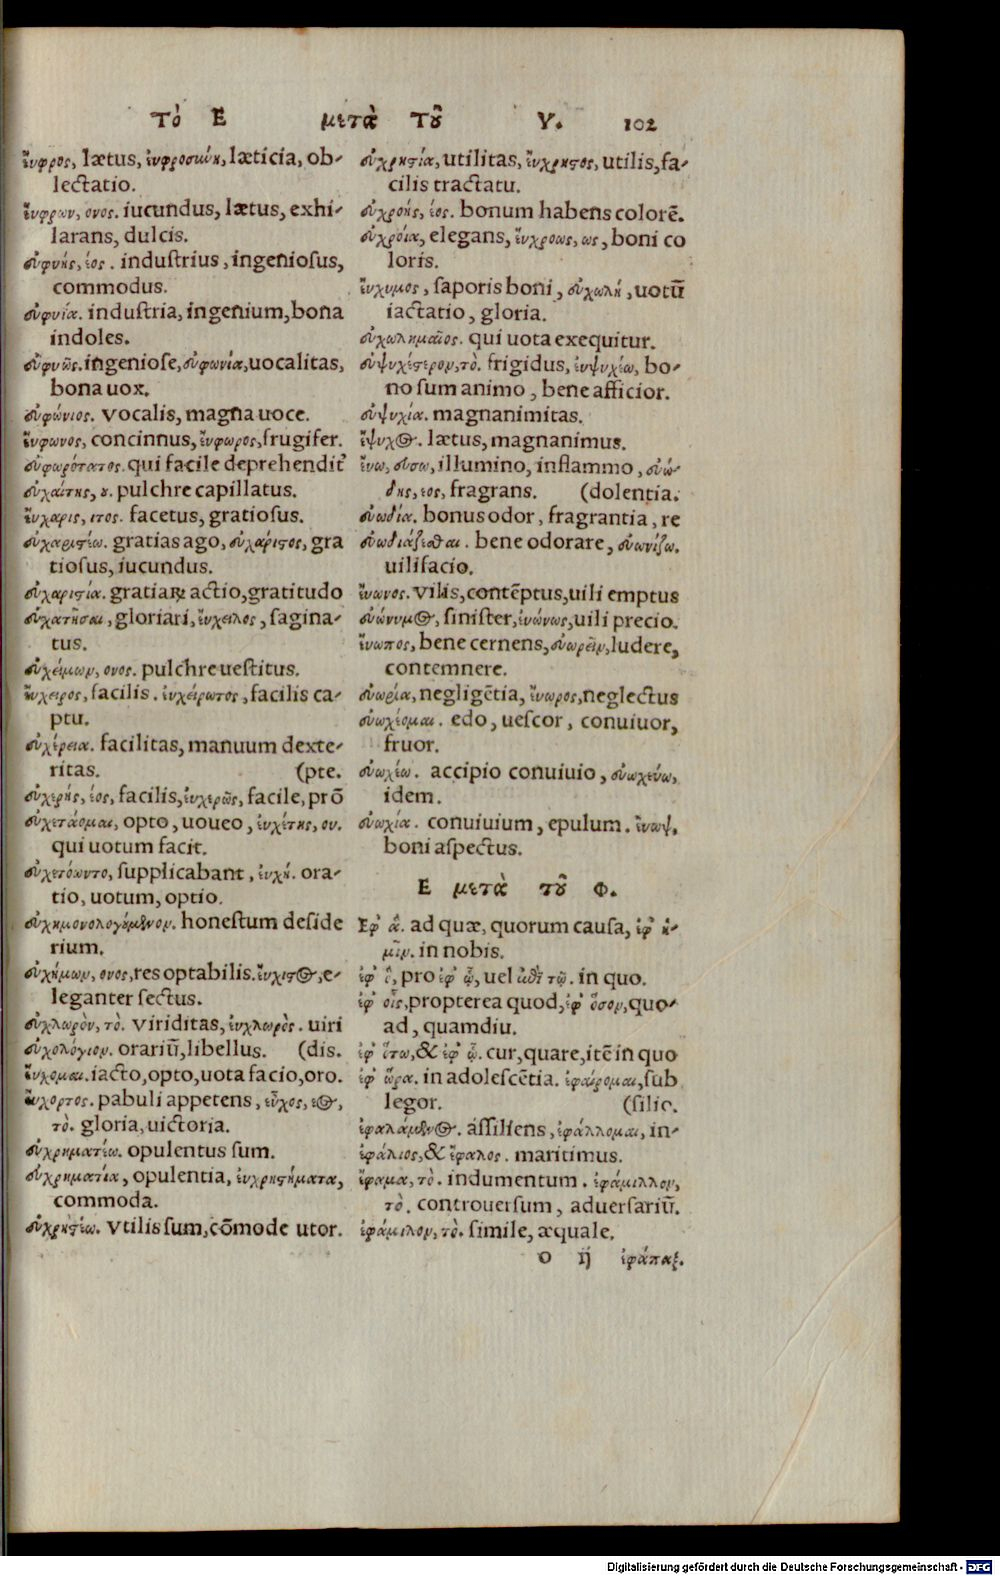 Τὸ Ε μετὰ Τοῦ Υ. 102
ἔυφρος, lætus, ἐυφροσιύη, læticia, ob-
lectatio.
ἔυφρων, ονος. iucundus, lætus, exhi-
larans, dulcis.
εὐφυής, έος. industrius, ingeniosus,
commodus.
εὐφυία. industria, ingenium, bona
indoles.
εὐφυῶς. ingeniose, εὐφωνία, uocalitas,
bona uox.
εὐφώνιος. vocalis, magna uoce.
ἔυφωνος, concinnus, ἔυφωρος, frugifer.
εὐφωρότατος. qui facile deprehendit᷑
εὐχαίτης, ȣ. pulchre capillatus.
ἔυχαρις, ιτος. facetus, gratiosus.
εὐχαριστέω. gratias ago, εὐχάριστος, gra
tiosus, iucundus.
εὐχαριστία. gratiaꝝ actio, gratitudo
εὐχατῆσαι, gloriari, ἔυχειλος, sagina-
tus.
εὐχείμων, ονος. pulchre uestitus.
ἔυχειρος, facilis. ἐυχείρωτος, facilis ca-
ptu.
εὐχέρεια. facilitas, manuum dexte-
ritas. (pte.
εὐχερής, έος, facilis, ἐυχερῶς, facile, prõ
εὐχετάομαι, opto, uoueo, ἐυχέτης, ου.
qui uotum facit.
εὐχετόωντο, supplicabant, ἐυχή. ora-
tio, uotum, optio.
εὐχημονολογούμενον. honestum deside
rium.
εὐχήμων, ονος, res optabilis. ἔυχιστος, e-
leganter sectus.
εὐχλωρὸν, τὸ. viriditas, ἐυχλωρὸς. uiri
εὐχολόγιον. orariũ, libellus. (dis.
ἔυχομαι. iacto, opto, uota facio, oro.
ἔυχορτος. pabuli appetens, εὖχος, εος,
τὸ. gloria, uictoria.
εὐχρηματέω. opulentus sum.
εὐχρηματία, opulentia, ἐυχρηστήματα,
commoda.
εὐχρηστέω. vtilis sum, cõmode utor.
εὐχρηστία, utilitas, ἔυχρηστος, utilis, fa-
cilis tractatu.
εὐχροής, έος. bonum habens colorẽ.
εὐχρόια, elegans, ἔυχροως, ως, boni co
loris.
ἔυχυμος, saporis boni, εὐχωλή, uotũ
iactatio, gloria.
εὐχωλημαῖος. qui uota exequitur.
εὐψυχέστερον, τὸ. frigidus, ἐυψυχέω, bo-
no sum animo, bene afficior.
εὐψυχία. magnanimitas.
ἔψυχος. lætus, magnanimus.
ἔυω, εύσω, illumino, inflammo, εὐώ-
δης, εος, fragrans. (dolentia.
εὐωδία. bonus odor, fragrantia, re
εὐωδιάζεσθαι. bene odorare, εὐωνίζω.
uilifacio.
ἔυωνος. vilis, contẽptus, uili emptus
εὐώνυμος, sinister, ἐυώνως, uili precio.
ἔυωπος, bene cernens, εὐωρεῖν, ludere,
contemnere.
εὐωρία, negligẽtia, ἔυωρος, neglectus
εὐωχέομαι. edo, uescor, conuiuor,
fruor.
εὐωχέω. accipio conuiuio, εὐωχεύω,
idem.
εὐωχία. conuiuium, epulum. ἔυωψ.
boni aspectus.
Ε μετὰ τοῦ Φ.
Εφ' ἅ. ad quæ, quorum causa, ἐφ' ἡ-
μῖν. in nobis.
ἐφ' ὃ, pro ἐφ' ᾧ, uel ἀθὶ τῷ. in quo.
ἐφ' οἷς, propterea quod, ἐφ' ὅσον, quo-
ad, quamdiu.
ἐφ' ὅτω, & ἐφ' ᾧ. cur, quare, itẽ in quo
ἐφ' ὥρα. in adolescẽtia. ἐφαίρομαι, sub
legor. (silio.
ἐφαλάμενος. assiliens, ἐφάλλομαι, in-
ἐφάλιος, & ἔφαλος. maritimus.
ἔφαμα, τὸ. indumentum. ἐφάμιλλον,
τὸ. controuersum, aduersariũ.
ἐφάμιλον, τὸ. simile, æquale.
O ij ἐφάπαξ.
Digitalisierung gefördert durch die Deutsche Forschungsgemeinschaft - DFG